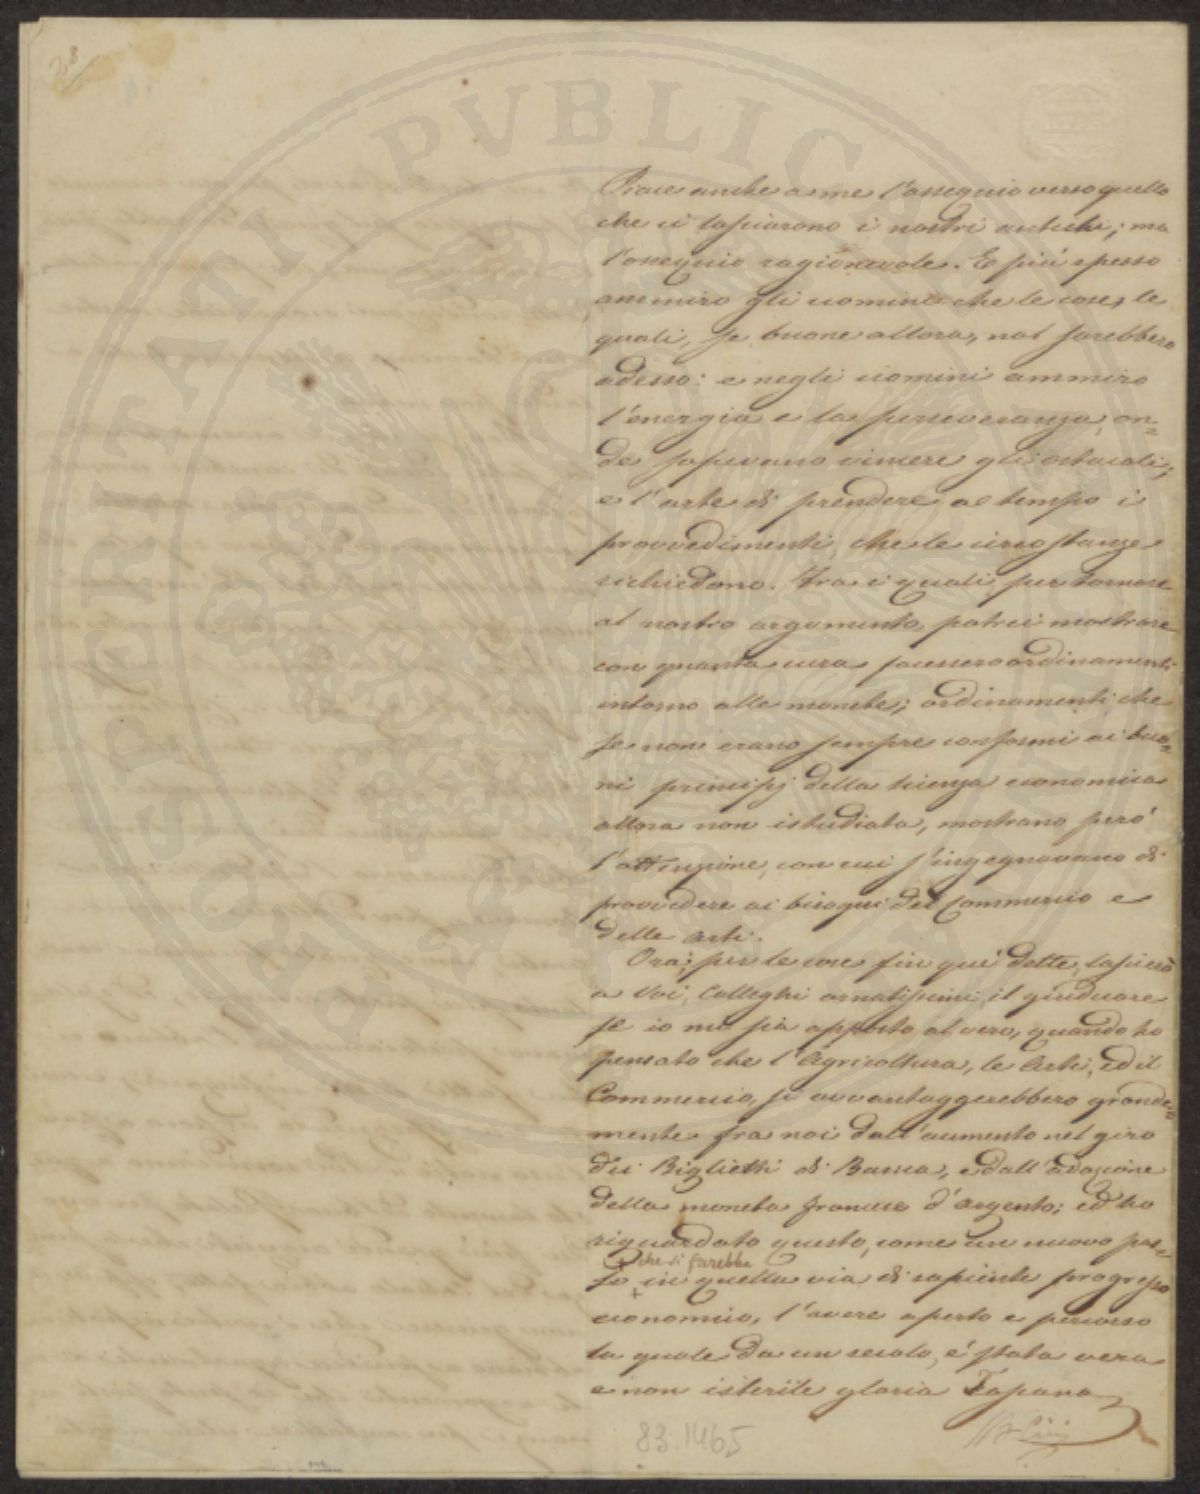 28
Piace anche a me l'ossequio verso quello
che ci lasciarono i nostri antichi; ma
l'ossequio ragionevole. E più spesso
ammiro gli uomini che le cose, le
quali, se buone allora, nol sarebbero
adesso: e negli uomini ammiro
l'energia e la perseveranza, on=
de sapevano vincere gli ostacoli;
e l'arte di prendere a tempo i
provvedimenti, che le circostanze
richiedono. Fra i quali, per tornare
al nostro argomento, potrei mostrare
con quanta cura facessero ordinamenti
intorno alle monete; ordinamenti, che
se non erano sempre conformi ai buo=
ni principj della scienza economica
allora non istudiata, mostrano però
l'attenzione, con cui s'ingegnavano di
provvedere ai bisogni del Commercio e
delle Arti.
Ora, per le cose fin qui dette, lascierò
a Voi, Colleghi ornatissimi, il giudicare
se io mi sia apposto al vero, quando ho
pensato che l'Agricoltura, le Arti, ed il
Commercio, si avvantaggerebbero grande=
mente fra noi dall'aumento nel giro
dei Biglietti di Banca, e dall'adozione
della moneta francese d'argento; ed ho
riguardato questo, come un nuovo pas=
che si farebbe
so + in quella via di sapiente progresso
economico, l'avere aperto e percorso
la quale da un secolo, è stata vera
e non isterile gloria Toscana
83.1465
PROSPERITATI PVBLICAE